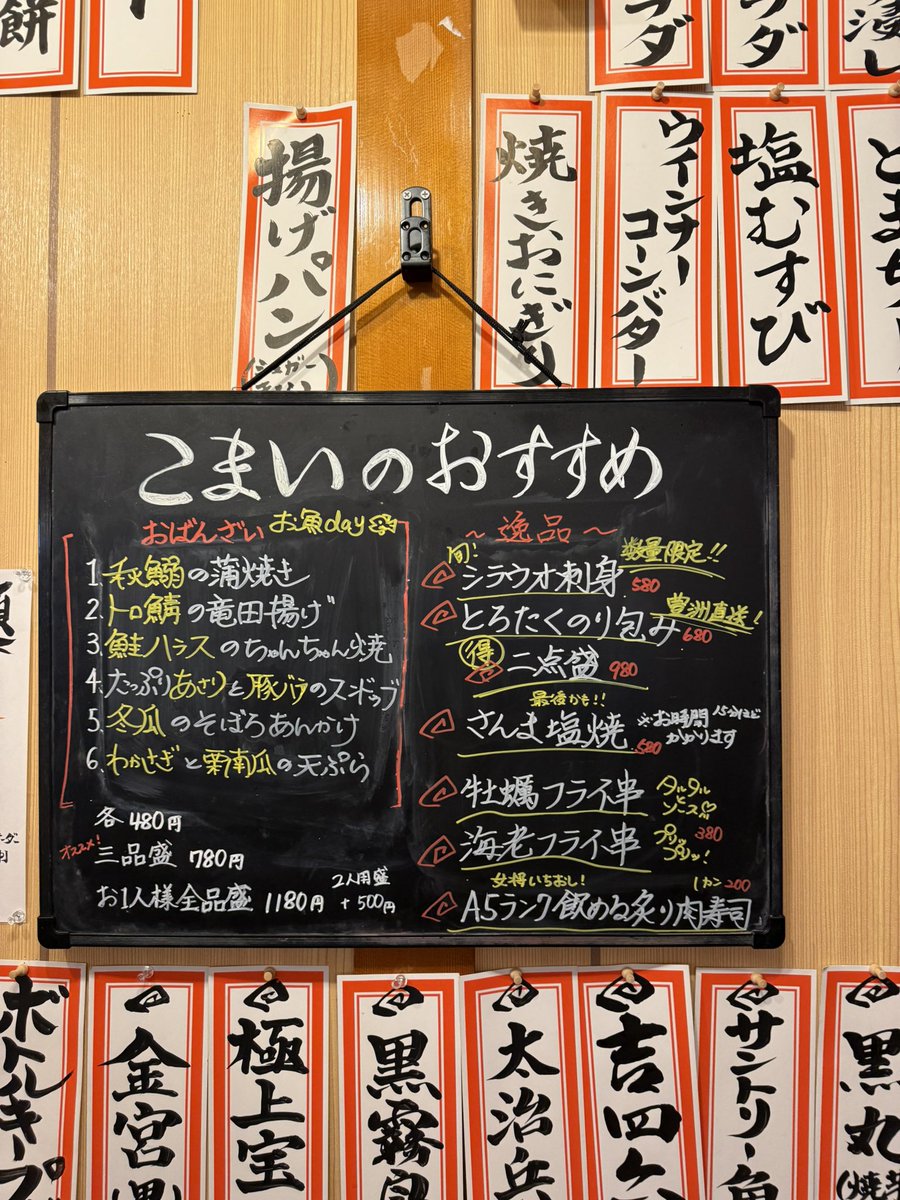 餅
ラダ
ラダ
漬し
揚げパン
焼きおにぎり
ウインナー
コーンバター
塩むすび
こまいのおすすめ
おばんざい お魚day
1.秋鰯の蒲焼き
2.トロ鯖の竜田揚げ
3.鮭ハラスのちゃんちゃん焼
4.たっぷりあさりと豚バラのスンドゥブ
5.冬瓜のそぼろあんかけ
6.わかさぎと栗南瓜の天ぷら
各480円
オススメ!
三品盛 780円
お1人様全品盛 1180円
2人用盛
+500円
〜逸品〜
旬!
数量限定!!
シラウオ刺身 580
豊洲直送!
とろたくのり包み 680
得 二点盛 980
最後かも!!
さんま塩焼 580
※お時間15分ほど
かかります
牡蠣フライ串
タルタル
と
ソース
海老フライ串
380
プリッ
プリッ!
女将いちおし!
1カン200
A5ランク飲める炙り肉寿司
ボトルキープ
金宮
極上宝
黒霧
太治兵
吉四
サントリー角
黒丸